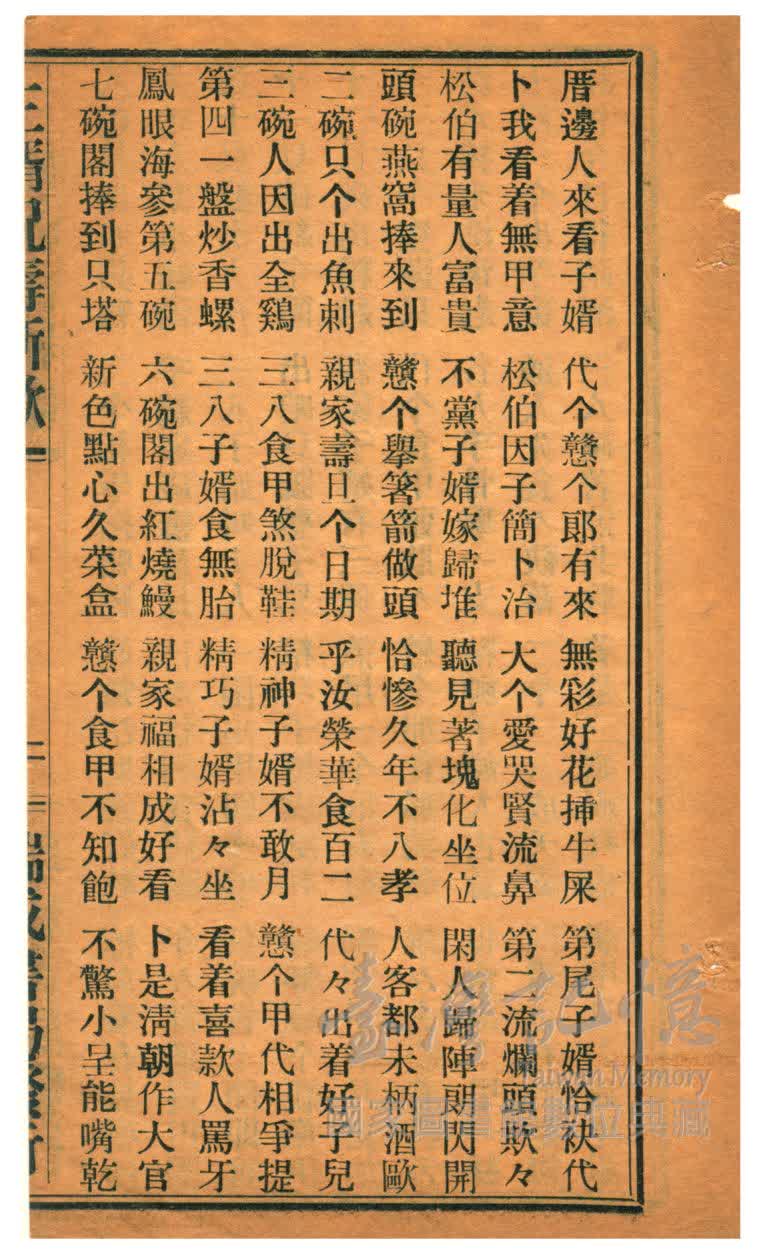 厝邊人來看子婿 代个戇个郎有來 無彩好花揷牛屎 第尾子婿恰袂代
卜我看着無甲意 松伯因子簡卜治 大个愛哭賢流鼻 第二流爛頭欺々
松伯有量人富貴 不黨子婿嫁歸堆 聽見著塊化坐位 閑人歸陣朗閃開
頭碗燕窩捧來到 戇个擧箸箭做頭 恰慘久年不八孝 人客都未柄酒歐
二碗只个出魚刺 親家壽旦个日期 乎汝榮華食百二 代々出着好子兒
三碗人因出全鷄 三八食甲煞脫鞋 精神子婿不敢月 戇个甲代相爭提
第四一盤炒香螺 三八子婿食無胎 精巧子婿沾々坐 看着喜款人罵牙
鳳眼海參第五碗 六碗閣出紅燒鰻 親家福相成好看 卜是淸朝作大官
七碗閣捧到只塔 新色點心久菜盒 戇个食甲不知飽 不驚小呈能嘴乾
三婿祝壽新歌 二 瑞成書局發行
臺灣記憶
Taiwan Memory
國家圖書館數位典藏